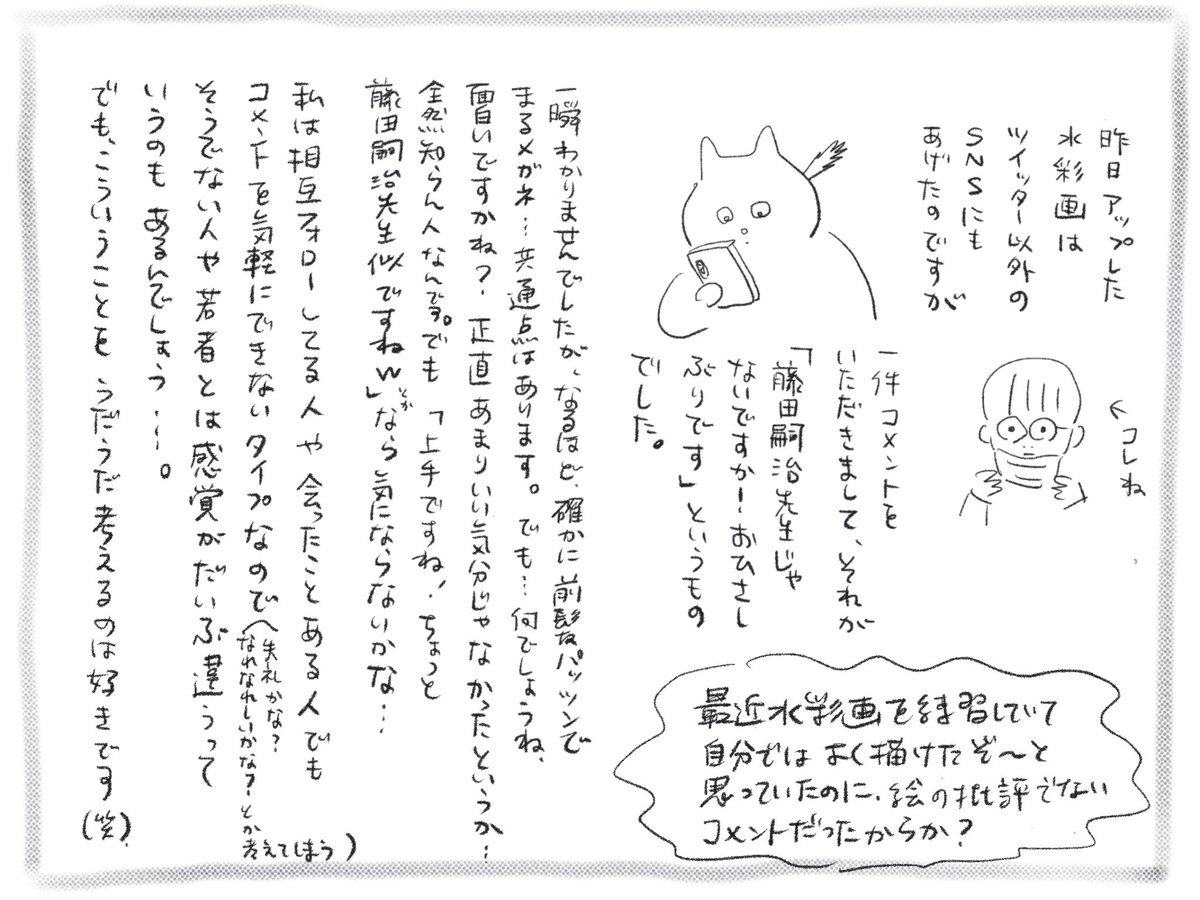 昨日アップした
水彩画は
ツイッター以外の
SNSにも
あげたのですが
←コレね
一件コメントを
いただきまして、それが
「藤田嗣治先生じゃ
ないですかーおひさし
ぶりです」というもの
でした。
最近水彩画を練習していて
自分ではよく描けたぞ〜と
思っていたのに、絵の批評でない
コメントだったからか？
一瞬わかりませんでしたが、なるほど、確かに前髪パッツンで
まるメガネ…共通点はあります。でも…何でしょうね、
面白いですかね？正直あまりいい気分じゃなかったというか…
全然知らん人なんです。でも「上手ですね！ちょっと
藤田嗣治先生似ですねw」とかなら気にならないかな…
私は相互フォローしてる人や会ったことある人でも
コメントを気軽にできないタイプなので（失礼かな？なれなれしいかな？とか考えてしまう）
そうでない人や若者とは感覚がだいぶ違うって
いうのもあるんでしょう…。
でも、こういうことをうだうだ考えるのは好きです(笑).